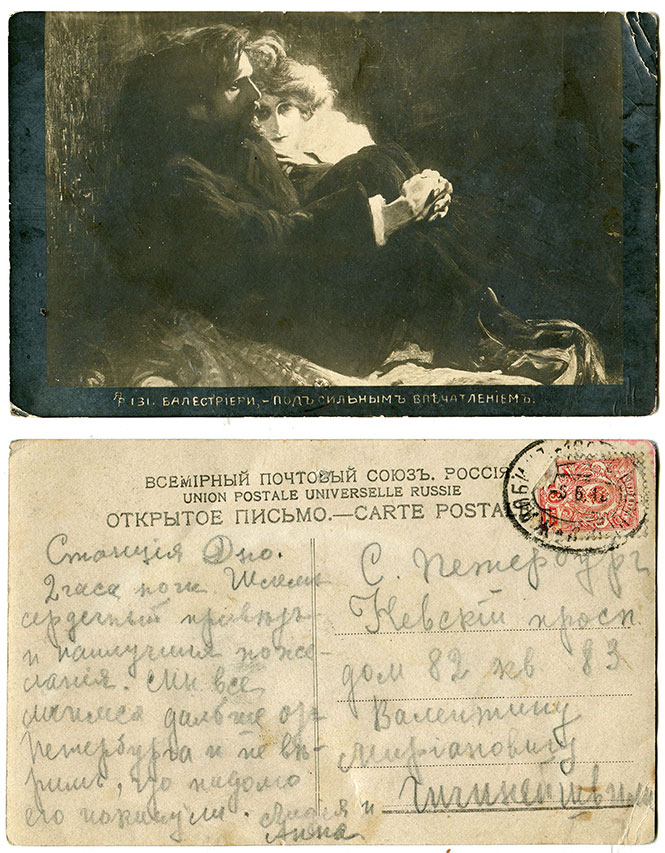 131. БАЛЕСТРІЕРИ, – ПОДЪ СИЛЬНЫМЪ ВПЕЧАТЛЕНІЕМЪ.
ВСЕМІРНЫЙ ПОЧТОВЫЙ СОЮЗЪ. РОССІЯ
UNION POSTALE UNIVERSELLE RUSSIE
ОТКРЫТОЕ ПИСЬМО.—CARTE POSTA
Станція Дно.
2 часа ночи. Шлемъ
сердечный привѣтъ
и наилучшія поже-
ланія. Мы все
мчимся дальше отъ
Петербурга и не вѣ-
римъ, что надолго
его покинули.
Анна
С. Петербург
Невскій просп
дом 82 кв 83
Валентину
Миріановичу